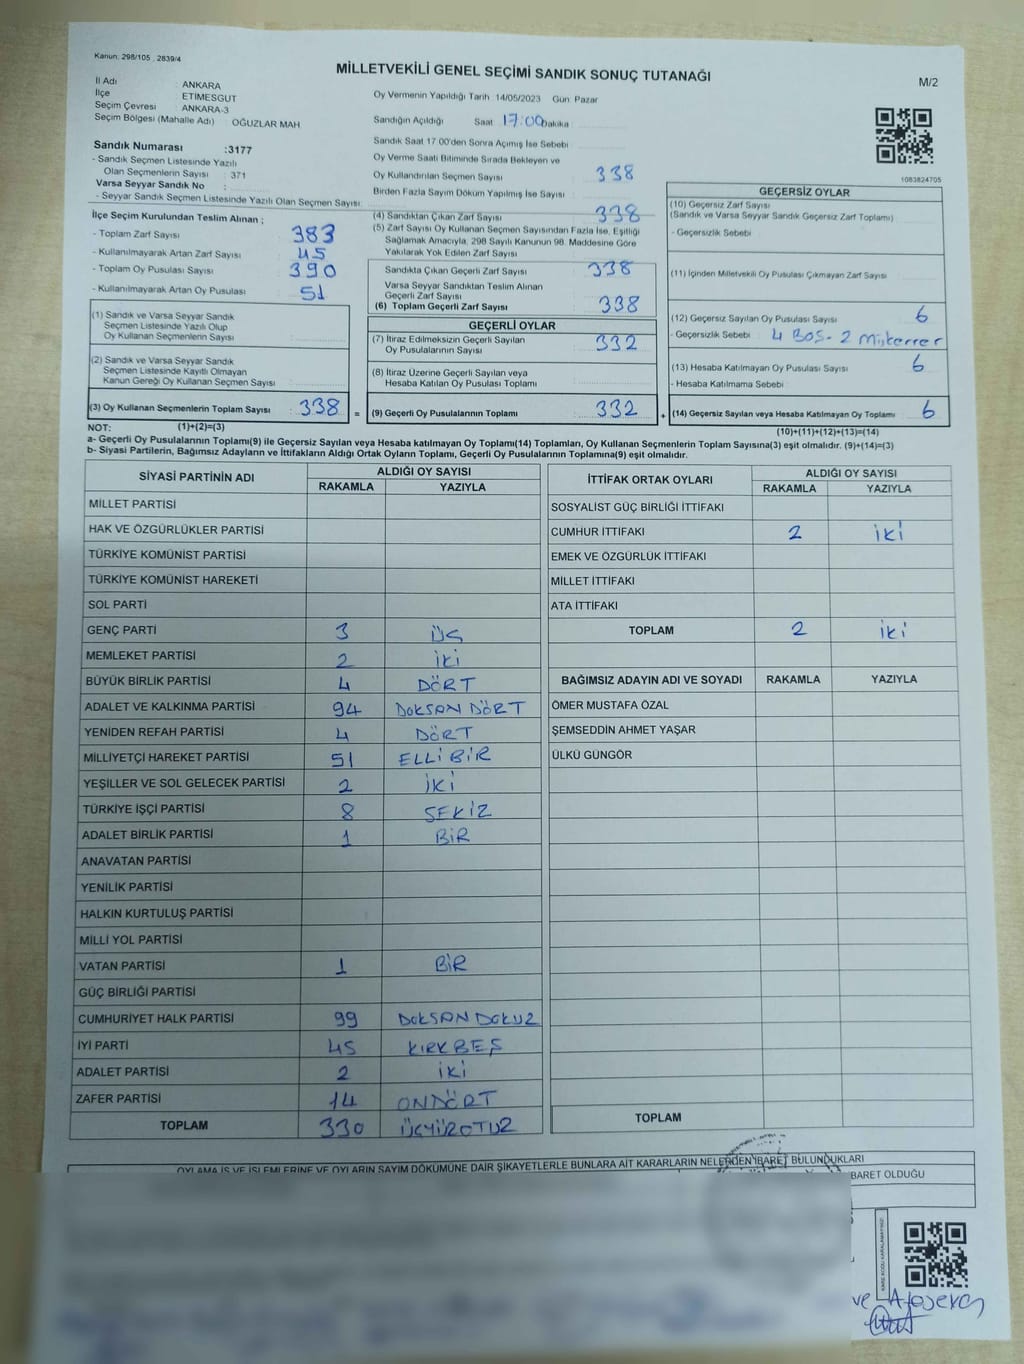 Kanun: 298/105 , 2839/4
MİLLETVEKİLİ GENEL SEÇİMİ SANDIK SONUÇ TUTANAĞI
M/2
İl Adı : ANKARA
İlçe : ETİMESGUT
Seçim Çevresi : ANKARA-3
Seçim Bölgesi (Mahalle Adı) : OĞUZLAR MAH
Sandık Numarası :3177
- Sandık Seçmen Listesinde Yazılı
Olan Seçmenlerin Sayısı : 371
Varsa Seyyar Sandık No :
- Seyyar Sandık Seçmen Listesinde Yazılı Olan Seçmen Sayısı:
Oy Vermenin Yapıldığı Tarih :14/05/2023 Gün: Pazar
Sandığın Açıldığı Saat 17:00 Dakika :
Sandık Saat 17:00'den Sonra Açımış İse Sebebi :
Oy Verme Saati Bitiminde Sırada Bekleyen ve
Oy Kullandırılan Seçmen Sayısı : 338
Birden Fazla Sayım Döküm Yapılmış İse Sayısı :
1083824705
İlçe Seçim Kurulundan Teslim Alınan ;
- Toplam Zarf Sayısı : 383
- Kullanılmayarak Artan Zarf Sayısı : 45
- Toplam Oy Pusulası Sayısı : 390
- Kullanılmayarak Artan Oy Pusulası : 51
(1) Sandık ve Varsa Seyyar Sandık
Seçmen Listesinde Yazılı Olup
Oy Kullanan Seçmenlerin Sayısı :
(2) Sandık ve Varsa Seyyar Sandık
Seçmen Listesinde Kayıtlı Olmayan
Kanun Gereği Oy Kullanan Seçmen Sayısı :
(3) Oy Kullanan Seçmenlerin Toplam Sayısı : 338 =
(4) Sandıktan Çıkan Zarf Sayısı : 338
(5) Zarf Sayısı Oy Kullanan Seçmen Sayısından Fazla İse, Eşitliği
Sağlamak Amacıyla, 298 Sayılı Kanunun 98. Maddesine Göre
Yakılarak Yok Edilen Zarf Sayısı :
Sandıkta Çıkan Geçerli Zarf Sayısı : 338
Varsa Seyyar Sandıktan Teslim Alınan
Geçerli Zarf Sayısı :
(6) Toplam Geçerli Zarf Sayısı : 338
GEÇERLİ OYLAR
(7) İtiraz Edilmeksizin Geçerli Sayılan
Oy Pusulalarının Sayısı : 332
(8) İtiraz Üzerine Geçerli Sayılan veya
Hesaba Katılan Oy Pusulası Toplamı :
(9) Geçerli Oy Pusulalarının Toplamı : 332 +
GEÇERSİZ OYLAR
(10) Geçersiz Zarf Sayısı
(Sandık ve Varsa Seyyar Sandık Geçersiz Zarf Toplamı)
- Geçersizlik Sebebi :
(11) İçinden Milletvekili Oy Pusulası Çıkmayan Zarf Sayısı :
(12) Geçersiz Sayılan Oy Pusulası Sayısı : 6
- Geçersizlik Sebebi : 4 BOŞ- 2 Mükerrer
(13) Hesaba Katılmayan Oy Pusulası Sayısı : 6
- Hesaba Katılmama Sebebi :
(14) Geçersiz Sayılan veya Hesaba Katılmayan Oy Toplamı : 6
NOT: (1)+(2)=(3)
(10)+(11)+(12)+(13)=(14)
a- Geçerli Oy Pusulalarının Toplamı(9) ile Geçersiz Sayılan veya Hesaba katılmayan Oy Toplamı(14) Toplamları, Oy Kullanan Seçmenlerin Toplam Sayısına(3) eşit olmalıdır. (9)+(14)=(3)
b- Siyasi Partilerin, Bağımsız Adayların ve İttifakların Aldığı Ortak Oyların Toplamı, Geçerli Oy Pusulalarının Toplamına(9) eşit olmalıdır.
SİYASİ PARTİNİN ADI ALDIĞI OY SAYISI
RAKAMLA YAZIYLA
MİLLET PARTİSİ
HAK VE ÖZGÜRLÜKLER PARTİSİ
TÜRKİYE KOMÜNİST PARTİSİ
TÜRKİYE KOMÜNİST HAREKETİ
SOL PARTİ
GENÇ PARTİ 3 ÜÇ
MEMLEKET PARTİSİ 2 İKİ
BÜYÜK BİRLİK PARTİSİ 4 DÖRT
ADALET VE KALKINMA PARTİSİ 94 DOKSAN DÖRT
YENİDEN REFAH PARTİSİ 4 DÖRT
MİLLİYETÇİ HAREKET PARTİSİ 51 ELLİ BİR
YEŞİLLER VE SOL GELECEK PARTİSİ 2 İKİ
TÜRKİYE İŞÇİ PARTİSİ 8 SEKİZ
ADALET BİRLİK PARTİSİ 1 BİR
ANAVATAN PARTİSİ
YENİLİK PARTİSİ
HALKIN KURTULUŞ PARTİSİ
MİLLİ YOL PARTİSİ
VATAN PARTİSİ 1 BİR
GÜÇ BİRLİĞİ PARTİSİ
CUMHURİYET HALK PARTİSİ 99 DOKSAN DOKUZ
İYİ PARTİ 45 KIRK BEŞ
ADALET PARTİSİ 2 İKİ
ZAFER PARTİSİ 14 ONDÖRT
TOPLAM 330 ÜÇYÜZOTUZ
İTTİFAK ORTAK OYLARI ALDIĞI OY SAYISI
RAKAMLA YAZIYLA
SOSYALİST GÜÇ BİRLİĞİ İTTİFAKI
CUMHUR İTTİFAKI 2 İKİ
EMEK VE ÖZGÜRLÜK İTTİFAKI
MİLLET İTTİFAKI
ATA İTTİFAKI
TOPLAM 2 İKİ
BAĞIMSIZ ADAYIN ADI VE SOYADI RAKAMLA YAZIYLA
ÖMER MUSTAFA ÖZAL
ŞEMSEDDİN AHMET YAŞAR
ÜLKÜ GÜNGÖR
TOPLAM
OYLAMA İŞ VE İŞLEMLERİNE VE OYLARIN SAYIM DÖKÜMÜNE DAİR ŞİKAYETLERLE BUNLARA AİT KARARLARIN NELERDEN İBARET BULUNDUKLARI
BARET OLDUĞU
ve